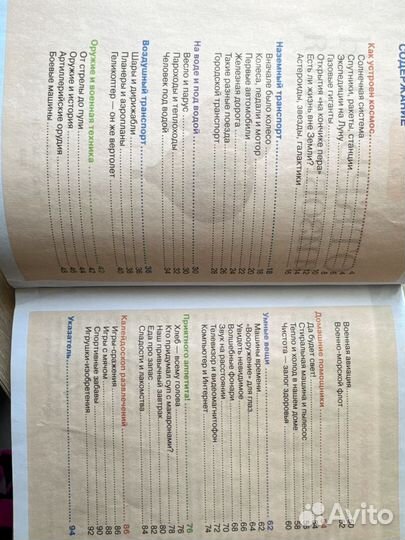 СОДЕРЖАНИЕ
Как устроен космос.......... 4
Солнечная система.......... 4
Спутники, ракеты, станции.......... 6
Экспедиции на Луну.......... 8
Газовые гиганты.......... 10
Открытия «на кончике пера».......... 12
Есть ли жизнь вне Земли?.......... 14
Астероиды, звезды, галактики.......... 16
Наземный транспорт.......... 18
Вначале было колесо.......... 18
Колеса, педали и мотор.......... 20
Первые автомобили.......... 22
Железная дорога.......... 24
Такие разные поезда.......... 26
Городской транспорт.......... 28
На воде и под водой.......... 30
Весло и парус.......... 30
Пароходы и теплоходы.......... 32
Человек под водой.......... 34
Воздушный транспорт.......... 36
Шары и дирижабли.......... 36
Планеры и аэропланы.......... 38
Геликоптер — он же вертолет.......... 40
Оружие и военная техника.......... 42
От стрелы до пули.......... 42
Оружие и история.......... 44
Артиллерийские орудия.......... 46
Боевые машины.......... 48
Военная авиация.......... 50
Военно-морской флот.......... 52
Домашние помощники.......... 54
Да будет свет!.......... 54
Стиральная машина и пылесос.......... 56
Тепло и холод в нашем доме.......... 58
Чистота — залог здоровья.......... 60
Умные вещи.......... 62
Машины времени.......... 62
«Вооружение» для глаз.......... 64
Увидеть невидимое.......... 66
Волшебные фонари.......... 68
Звук на расстоянии.......... 70
Телевизор и видеомагнитофон.......... 72
Компьютер и Интернет.......... 74
Приятного аппетита!.......... 76
Хлеб — всему голова.......... 76
Кто придумал суп с макаронами?.......... 78
Наш привычный завтрак.......... 80
Еда про запас.......... 82
Сладости и лакомства.......... 84
Калейдоскоп развлечений.......... 86
Игры-сражения.......... 86
Игры с мячом.......... 88
Спортивные забавы.......... 90
Игрушки-изобретения.......... 92
Указатель.......... 94
Avito